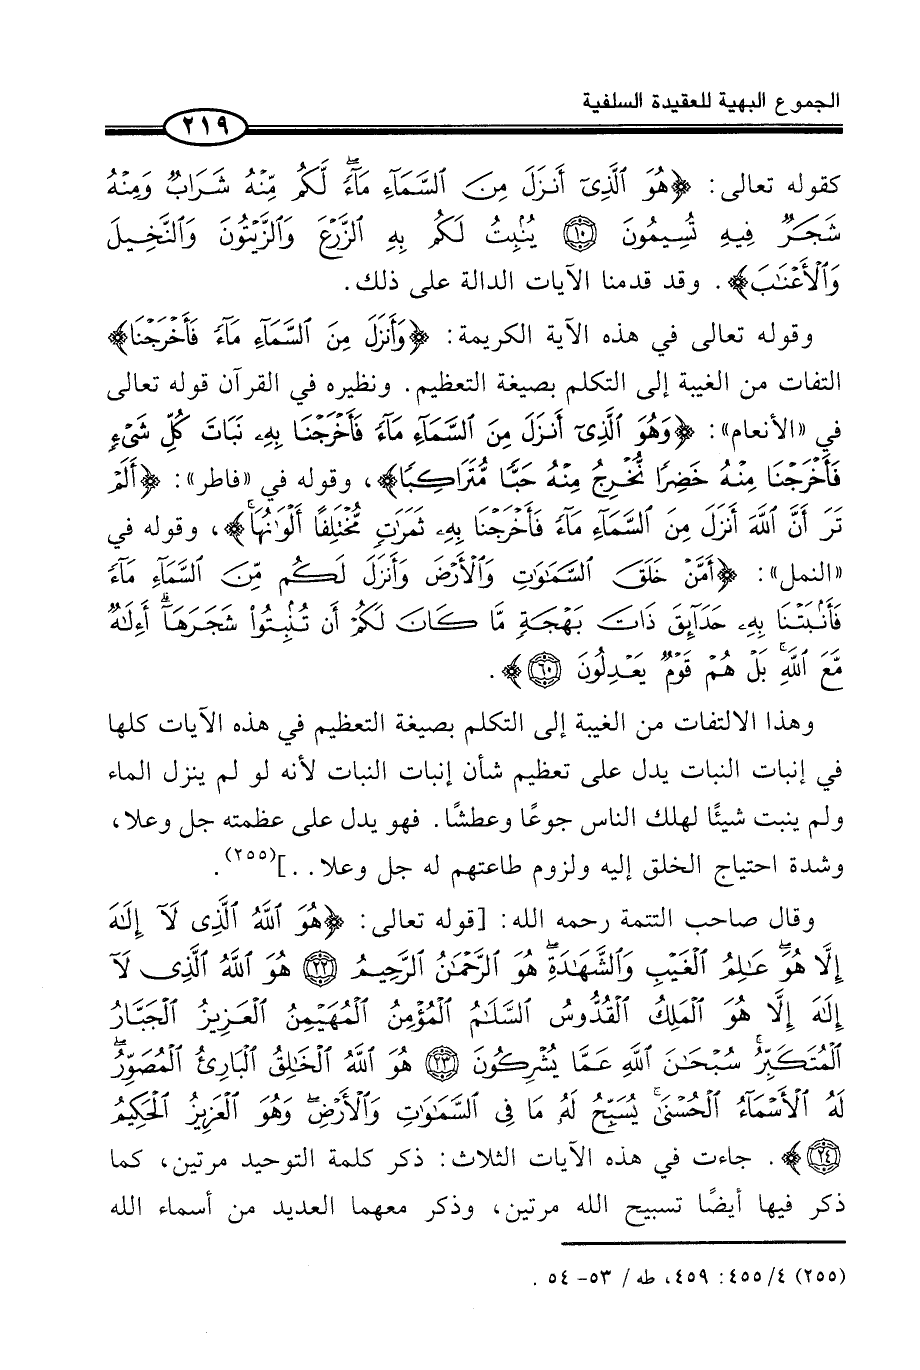 الجموع البهية للعقيدة السلفية
٢١٩
كقوله تعالى: ﴿هُوَ ٱلَّذِىٓ أَنزَلَ مِنَ ٱلسَّمَآءِ مَآءً ۖ لَّكُم مِّنْهُ شَرَابٌ وَمِنْهُ
شَجَرٌ فِيهِ تُسِيمُونَ ۝١٠ يُنۢبِتُ لَكُم بِهِ ٱلزَّرْعَ وَٱلزَّيْتُونَ وَٱلنَّخِيلَ
وَٱلْأَعْنَٰبَ﴾. وقد قدمنا الآيات الدالة على ذلك.
وقوله تعالى في هذه الآية الكريمة: ﴿وَأَنزَلَ مِنَ ٱلسَّمَآءِ مَآءً فَأَخْرَجْنَا﴾
التفات من الغيبة إلى التكلم بصيغة التعظيم. ونظيره في القرآن قوله تعالى
في «الأنعام»: ﴿وَهُوَ ٱلَّذِىٓ أَنزَلَ مِنَ ٱلسَّمَآءِ مَآءً فَأَخْرَجْنَا بِهِۦ نَبَاتَ كُلِّ شَىْءٍ
فَأَخْرَجْنَا مِنْهُ خَضِرًا نُّخْرِجُ مِنْهُ حَبًّا مُّتَرَاكِبًا﴾، وقوله في «فاطر»: ﴿أَلَمْ
تَرَ أَنَّ ٱللَّهَ أَنزَلَ مِنَ ٱلسَّمَآءِ مَآءً فَأَخْرَجْنَا بِهِۦ ثَمَرَٰتٍ مُّخْتَلِفًا أَلْوَٰنُهَا ۚ﴾، وقوله في
«النمل»: ﴿أَمَّنْ خَلَقَ ٱلسَّمَٰوَٰتِ وَٱلْأَرْضَ وَأَنزَلَ لَكُم مِّنَ ٱلسَّمَآءِ مَآءً
فَأَنۢبَتْنَا بِهِۦ حَدَآئِقَ ذَاتَ بَهْجَةٍ مَّا كَانَ لَكُمْ أَن تُنۢبِتُوا۟ شَجَرَهَآ ۗ أَءِلَٰهٌ
مَّعَ ٱللَّهِ ۚ بَلْ هُمْ قَوْمٌ يَعْدِلُونَ ۝٦٠﴾.
وهذا الالتفات من الغيبة إلى التكلم بصيغة التعظيم في هذه الآيات كلها
في إنبات النبات يدل على تعظيم شأن إنبات النبات لأنه لو لم ينزل الماء
ولم ينبت شيئًا لهلك الناس جوعًا وعطشًا. فهو يدل على عظمته جل وعلا،
وشدة احتياج الخلق إليه ولزوم طاعتهم له جل وعلا..](٢٥٥).
وقال صاحب التتمة رحمه الله: [قوله تعالى: ﴿هُوَ ٱللَّهُ ٱلَّذِى لَآ إِلَٰهَ
إِلَّا هُوَ ۖ عَٰلِمُ ٱلْغَيْبِ وَٱلشَّهَٰدَةِ ۖ هُوَ ٱلرَّحْمَٰنُ ٱلرَّحِيمُ ۝٢٢ هُوَ ٱللَّهُ ٱلَّذِى لَآ
إِلَٰهَ إِلَّا هُوَ ٱلْمَلِكُ ٱلْقُدُّوسُ ٱلسَّلَٰمُ ٱلْمُؤْمِنُ ٱلْمُهَيْمِنُ ٱلْعَزِيزُ ٱلْجَبَّارُ
ٱلْمُتَكَبِّرُ ۚ سُبْحَٰنَ ٱللَّهِ عَمَّا يُشْرِكُونَ ۝٢٣ هُوَ ٱللَّهُ ٱلْخَٰلِقُ ٱلْبَارِئُ ٱلْمُصَوِّرُ ۖ
لَهُ ٱلْأَسْمَآءُ ٱلْحُسْنَىٰ ۚ يُسَبِّحُ لَهُۥ مَا فِى ٱلسَّمَٰوَٰتِ وَٱلْأَرْضِ ۖ وَهُوَ ٱلْعَزِيزُ ٱلْحَكِيمُ
۝٢٤﴾. جاءت في هذه الآيات الثلاث: ذكر كلمة التوحيد مرتين، كما
ذكر فيها أيضًا تسبيح الله مرتين، وذكر معهما العديد من أسماء الله
(٢٥٥) ٤/ ٤٥٥: ٤٥٩، طه / ٥٣- ٥٤ .